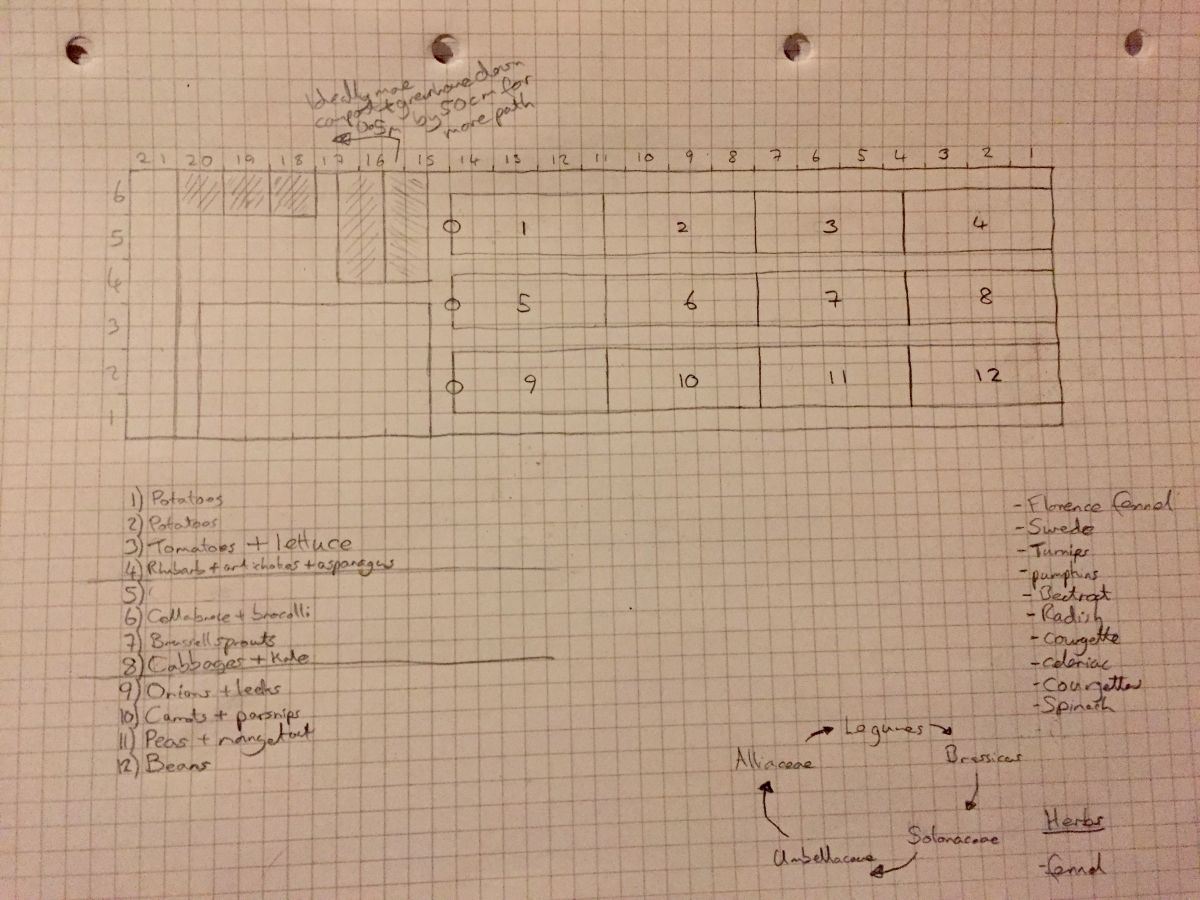 Ideally move
compost + greenhouse down
0.5m by 50cm for
more path
21 20 19 18 17 16 15 14 13 12 11 10 9 8 7 6 5 4 3 2 1
6
5
4
3
2
1
1 2 3 4
5 6 7 8
9 10 11 12
1) Potatoes
2) Potatoes
3) Tomatoes + lettuce
4) Rhubarb + artichokes + asparagus
5)
6) Collabrese + brocolli
7) Brussell sprouts
8) Cabbages + Kale
9) Onions + leeks
10) Carrots + parsnips
11) Peas + mangetout
12) Beans
- Florence fennel
- Swede
- Turnips
- pumpkins
- Beetroot
- Radish
- Courgette
- celeriac
- Courgettes
- Spinach
Legumes
Alliaceae
Brassicas
Solanaceae
Umbellaceae
Herbs
- fennel